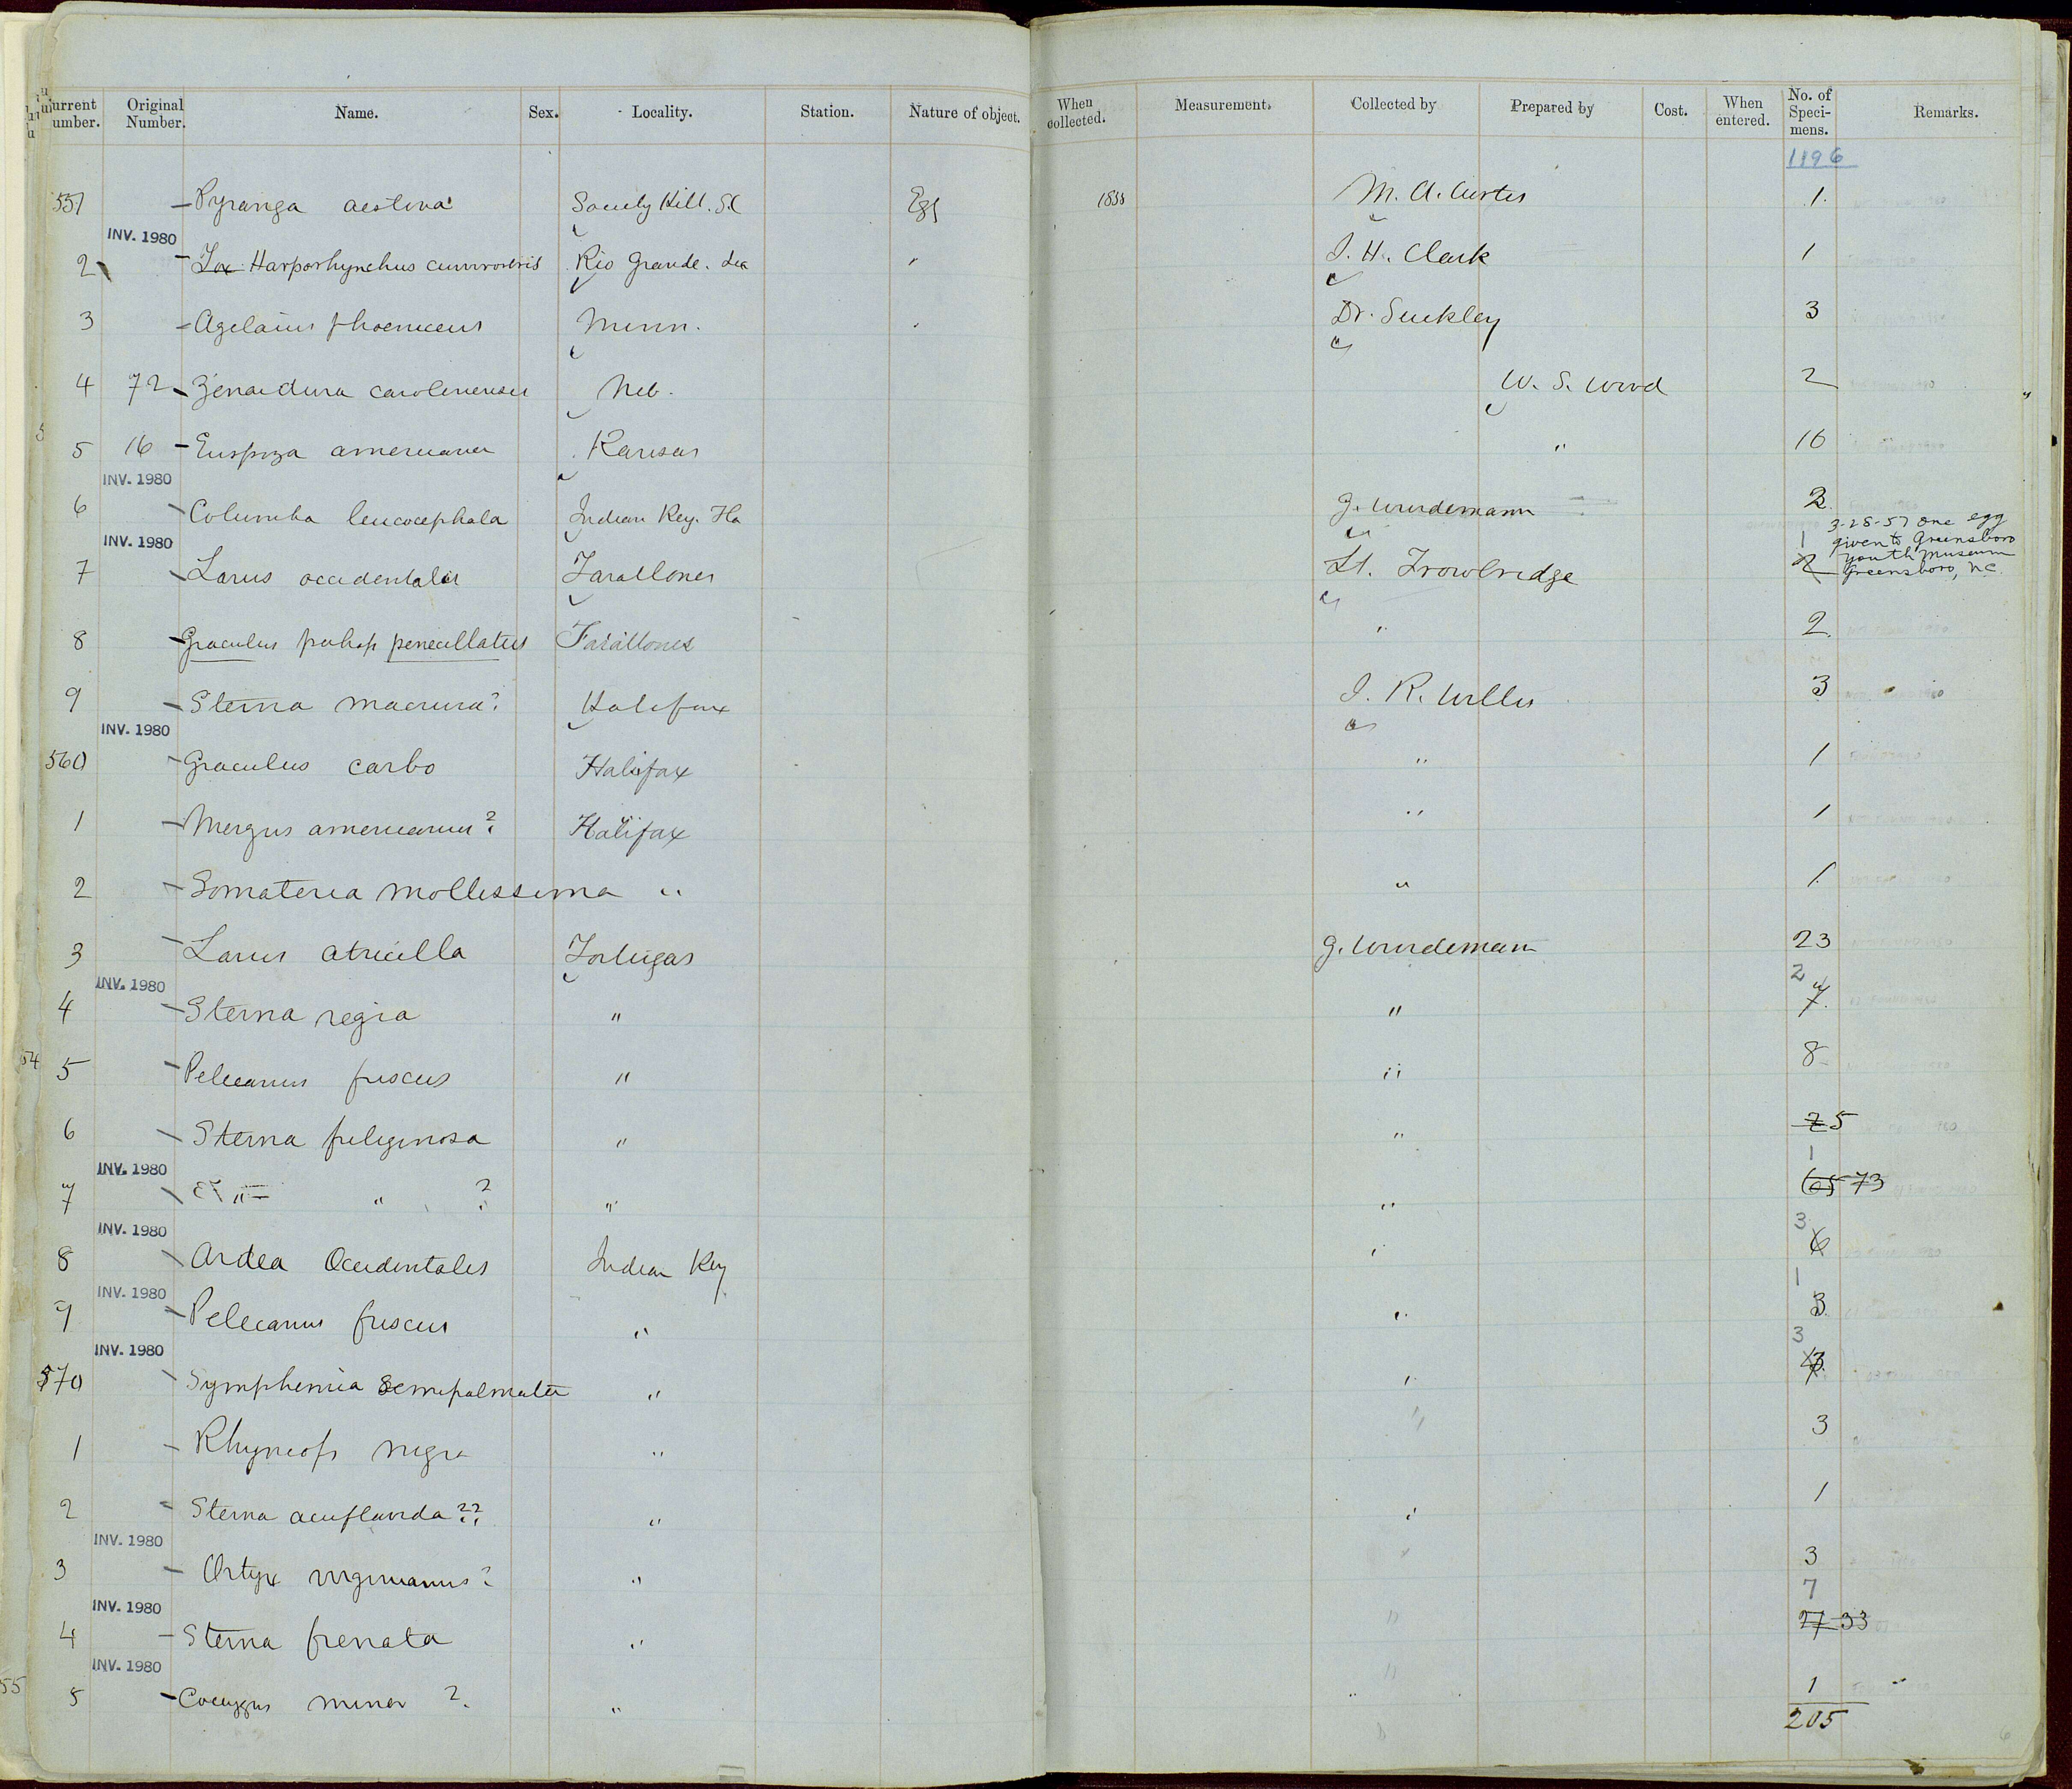 Current Number. Original Number. Name. Sex. Locality. Station. Nature of object. When collected. Measurement. Collected by Prepared by Cost. When entered. No. of Specimens. Remarks.
1196
551 Pyranga aestiva Society Hill. S.C Egg 1855 M. A. Curtis 1
INV. 1980
2 Tox Harporhynchus curvirostris Rio Grande. " J. H. Clark 1
3 Agelaius phoeniceus Minn. " Dr. Suckley 3
4 72 Zenaidura carolinensis Neb. W. S. Wood 2
5 16 Euspiza americana Kansas " 16
INV. 1980
6 Columba leucocephala Indian Key. Fla G. Wurdemann 2
INV. 1980
7 Larus occidentalis Farallones Lt. Trowbridge 2 1 3-28-57 one egg
given to Greensboro
Youth Museum
Greensboro, NC.
8 Graculus perhaps penecillatus Farallones " 2
9 Sterna macrura? Halifax J. R. Willis 3
INV. 1980
560 Graculus carbo Halifax " 1
1 Mergus americanus? Halifax " 1
2 Somateria mollissima " " 1
3 Larus atricilla Tortugas G. Wurdemann 23
INV. 1980
2
4 Sterna regia " " 7
5 Pelecanus fuscus " " 8
6 Sterna fuliginosa " " 2 5
INV. 1980
1
7 " " ? " " 65 73
INV. 1980
3
8 Ardea Occidentalis Indian Key " 6
INV. 1980
1
9 Pelecanus fuscus " " 3
INV. 1980
3
570 Symphemia semipalmata " "
1 Rhyncops nigra " " 3
2 Sterna acuflavida?? " " 1
INV. 1980
3 Ortyx virginianus? " " 3
INV. 1980
7
4 Sterna frenata " " 27 33
INV. 1980
5 Coccygus minor ? " " 1
205